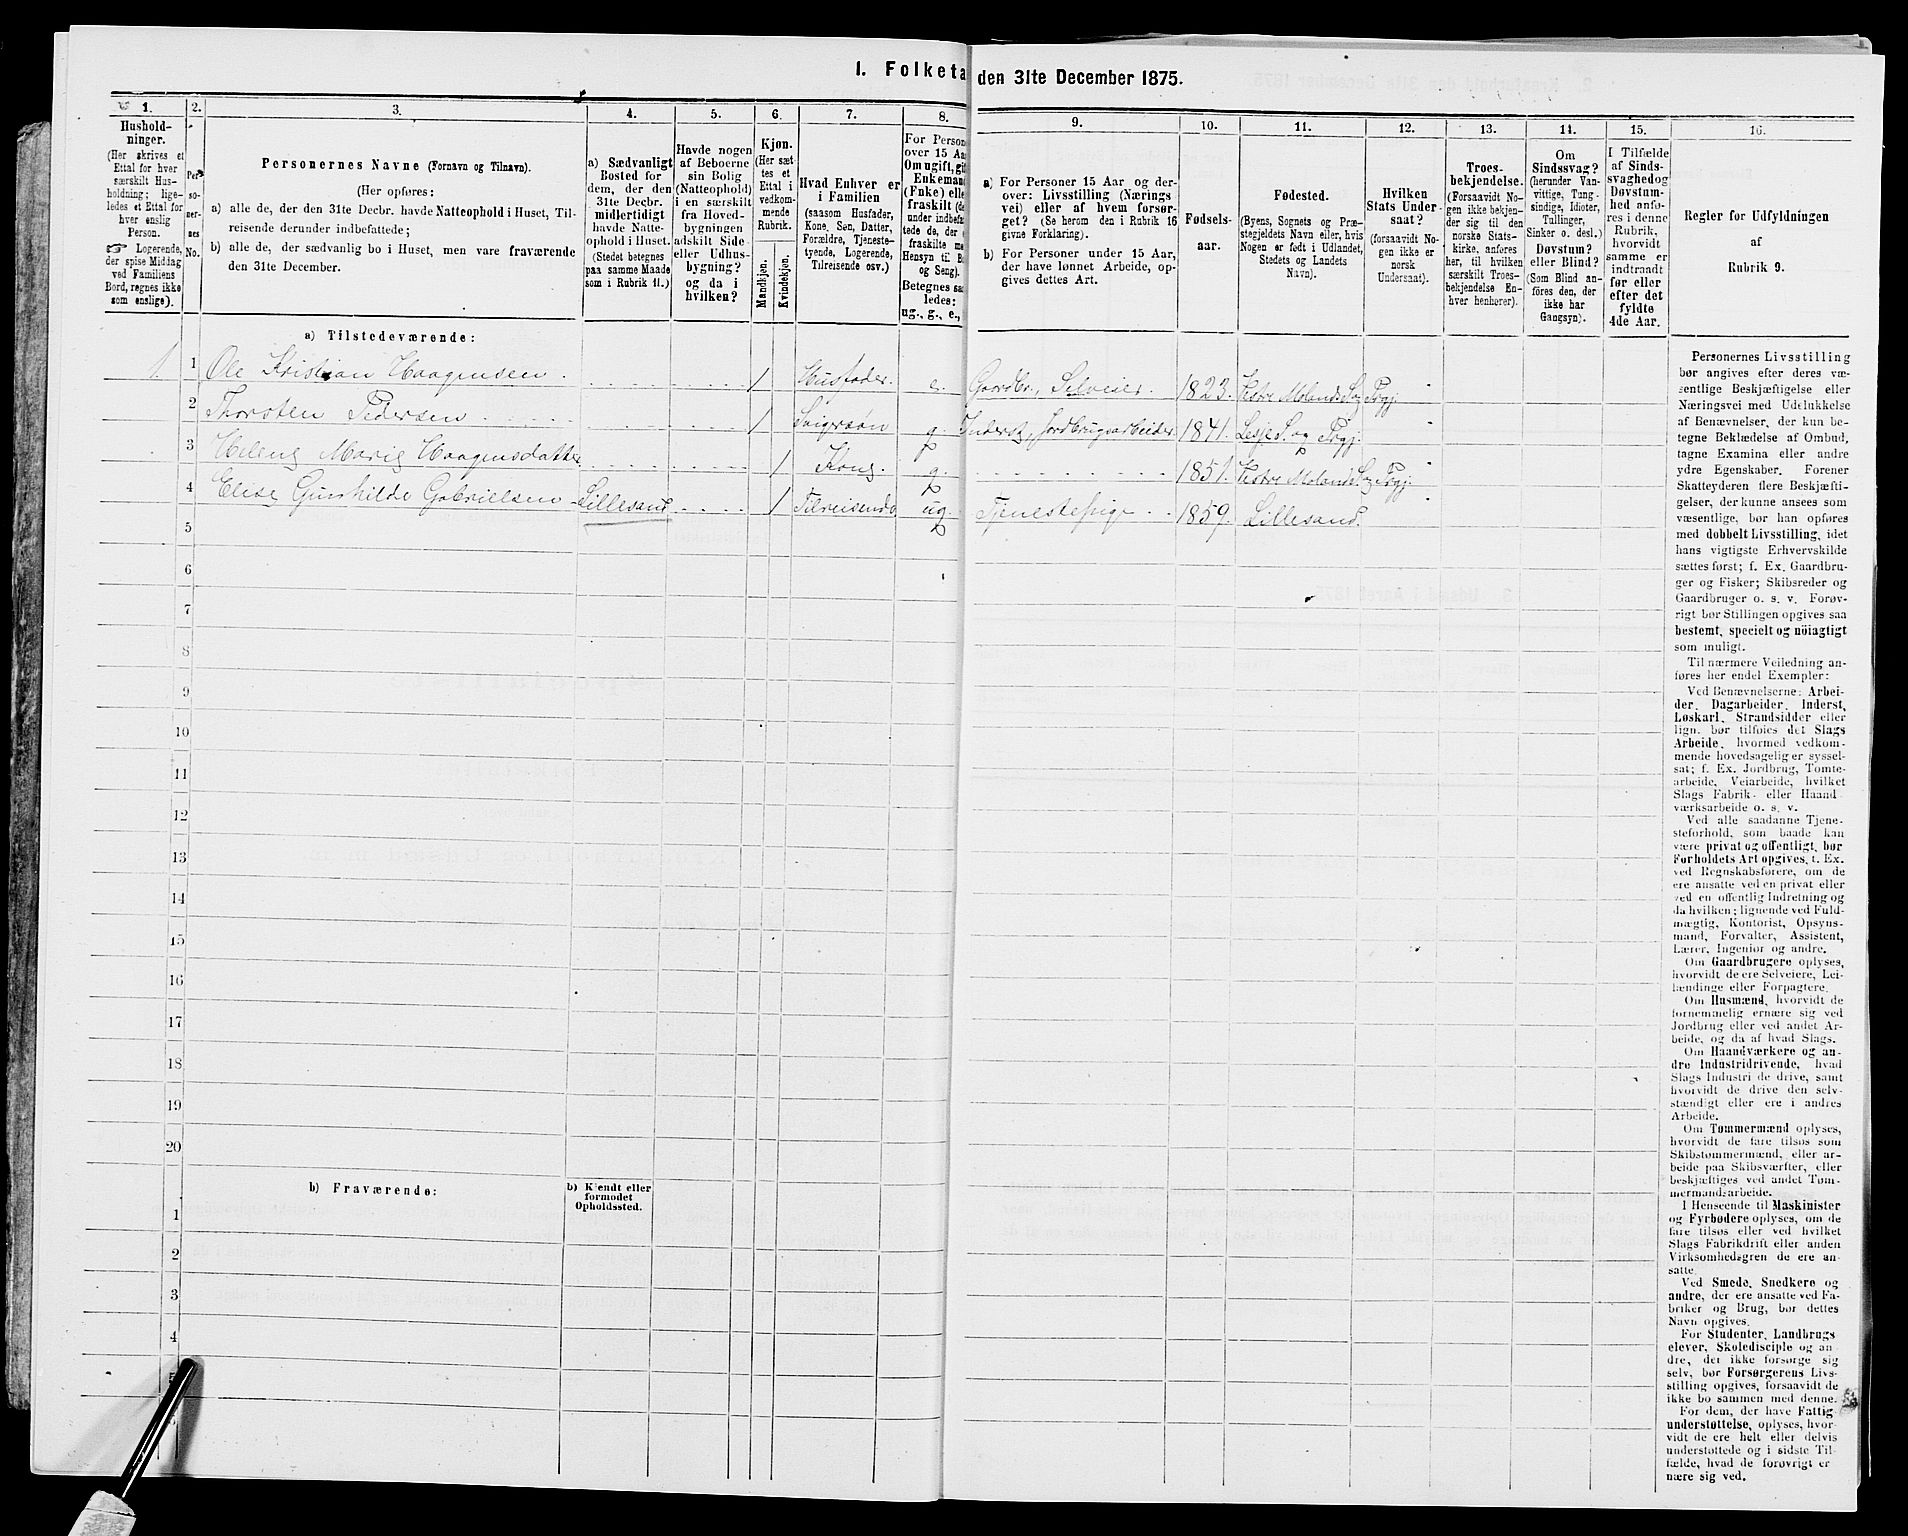 1. Folketa den 31te December 1875.
1. 2. 3. 4. 5. 6. 7. 8. 9. 10. 11. 12. 13. 14. 15. 16.
Hushold-
ninger.
(Her skrives et
Ettal for hver
særskilt Hus-
holdning; lige-
ledes et Ettal for
hver enslig
Person.
☞ Logerende,
der spise Middag
ved Familiens
Bord, regnes ikke
som enslige).
Per-
so-
ner-
nes
No.
Personernes Navne (Fornavn og Tilnavn).
(Her opføres:
a) alle de, der den 31te Decbr. havde Natteophold i Huset, Til-
reisende derunder indbefattede;
b) alle de, der sædvanlig bo i Huset, men vare fraværende
den 31te December.
a) Sædvanligt
Bosted for
dem, der den
31te Decbr.
midlertidigt
havde Natte-
ophold i Huset.
(Stedet betegnes
paa samme Maade
som i Rubrik 11.)
Havde nogen
af Beboerne
sin Bolig
(Natteophold)
i en særskilt
fra Hoved-
bygningen
adskilt Side-
eller Udhus-
bygning?
og da i
hvilken?
Kjøn.
(Her sæt-
tes et
Ettal i
vedkom-
mende
Rubrik.
Mandkjøn.
Kvindekjøn.
Hvad Enhver er
i Familien
(saasom Husfader,
Kone, Søn, Datter,
Forældre, Tjeneste-
tyende, Logerende,
Tilreisende osv.)
For Persone
over 15 Aa
Om ugift, gif
Enkemand
(Enke) elle
fraskilt (de
under indbefat
tede de, der e
fraskilte me
Hensyn til B
og Seng).
Betegnes saa
ledes:
ug., g., e.,
a) For Personer 15 Aar og der-
over: Livsstilling (Nærings
vei) eller af hvem forsør-
get? (Se herom den i Rubrik 16
givne Forklaring).
b) For Personer under 15 Aar,
der have lønnet Arbeide, op-
gives dettes Art.
Fødsels-
aar.
Fødested.
(Byens, Sognets og Præ-
stegjeldets Navn eller, hvis
Nogen er født i Udlandet,
Stedets og Landets
Navn).
Hvilken
Stats Under-
saat?
(forsaavidt No-
gen ikke er
norsk
Undersaat).
Troes-
bekjendelse.
(Forsaavidt No-
gen ikke bekjen-
der sig til den
norske Stats-
kirke, anføres
her, til hvilken
særskilt Troes-
bekjendelse En-
hver henhører).
Om
Sindssvag?
(herunder Van-
vittige, Tung-
sindige, Idioter,
Tullinger,
Sinker o. desl.)
Døvstum?
eller Blind?
(Som Blind an-
føres den, der
ikke har
Gangsyn).
I Tilfælde
af Sinds-
svaghed og
Døvstum-
hed anfø-
res i denne
Rubrik,
hvorvidt
samme er
indtraadt
før eller
efter det
fyldte
4de Aar.
Regler for Udfyldningen
af
Rubrik 9.
a) Tilstedeværende:
1 1 Ole Kristian Haagensen. 1 Husfader. e. Gaardbr., Selveier. 1823. Vestre Molands Sog Prgj.
2 Thorsten Pedersen 1 Svigersøn g. Inderst, Jordbrugsarbeider. 1841. Lesje S. og Prgj.
3 Helene Marie Haagensdatter 1 Kone. g. 1851. Vestre Molands Sog Prgj.
4 Elise Gunhilde Gabrielsen Lillesand 1 Tilreisende ug. Tjenestepige 1859. Lillesand.
5
6
7
8
9
10
11
12
13
14
15
16
17
18
19
20
b) Fraværende:
b) Kjendt eller
formodet
Opholdssted.
1
2
3
4
5
Personernes Livsstilling
bør angives efter deres væ-
sentlige Beskjæftigelse eller
Næringsvei med Udelukkelse
af Benævnelser, der kun be-
tegne Beklædelse af Ombud,
tagne Examina eller andre
ydre Egenskaber. Forener
Skatteyderen flere Beskjæfti-
gelser, der kunne ansees som
væsentlige, bør han opføres
med dobbelt Livsstilling, idet
hans vigtigste Erhvervskilde
sættes først; f. Ex. Gaardbru-
ger og Fisker; Skibsreder og
Gaardbruger o. s. v. Forøv-
rigt bør Stillingen opgives saa
bestemt, specielt og nöiagtigt
som muligt.
Til nærmere Veiledning an-
føres her endel Exempler:
Ved Benævnelserne: Arbei-
der, Dagarbeider, Inderst,
Løskarl, Strandsidder eller
lign. bør tilføies det Slags
Arbeide, hvormed vedkom-
mende hovedsagelig er syssel-
sat; f. Ex. Jordbrug, Tomte-
arbeide, Veiarbeide, hvilket
Slags Fabrik- eller Haand-
værksarbeide o. s. v.
Ved alle saadanne Tjene-
steforhold, som baade kan
være privat og offentligt, bør
Forholdets Art opgives, f. Ex.
ved Regnskabsførere, om de
ere ansatte ved en privat eller
ved en offentlig Indretning og
da hvilken; lignende ved Fuld-
mægtig, Kontorist, Opsyns-
mand, Forvalter, Assistent,
Lærer, Ingeniør og andre.
Om Gaardbrugere oplyses,
hvorvidt de ere Selveiere, Lei-
lændinge eller Forpagtere.
Om Husmænd, hvorvidt de
fornemmelig ernære sig ved
Jordbrug eller ved andet Ar-
beide, og da af hvad Slags.
Om Haandværkere og an-
dre Industridrivende, hvad
Slags Industri de drive, samt
hvorvidt de drive den selv-
stændigt eller ere i andres
Arbeide.
Om Tømmermænd oplyses,
hvorvidt de fare tilsøs som
Skibstømmermænd, eller ar-
beide paa Skibsværfter, eller
beskjæftiges ved andet Tøm-
mermandsarbeide.
I Henseende til Maskinister
og Fyrbødere oplyses, om de
fare tilsøs eller ved hvilket
Slags Fabrikdrift eller anden
Virksomhedsgren de ere an-
satte.
Ved Smede, Snedkere og
andre, der ere ansatte ved Fa-
briker og Brug, bør dettes
Navn opgives.
For Studenter, Landbrugs
elever, Skoledisciple og an
dre, der ikke forsørge sig
selv, bør Forsørgerens Livs-
stilling opgives, forsaavidt de
ikke bo sammen med denne.
For dem, der have Fattig-
understøttelse, oplyses, hvor-
vidt de ere helt eller delvis
understøttede og i sidste Til-
fælde, hvad de forøvrigt er
nære sig ved.